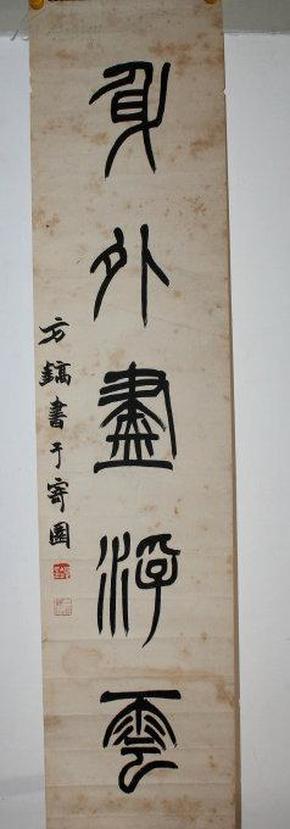 身外盡浮雲
方鎬書于寄園